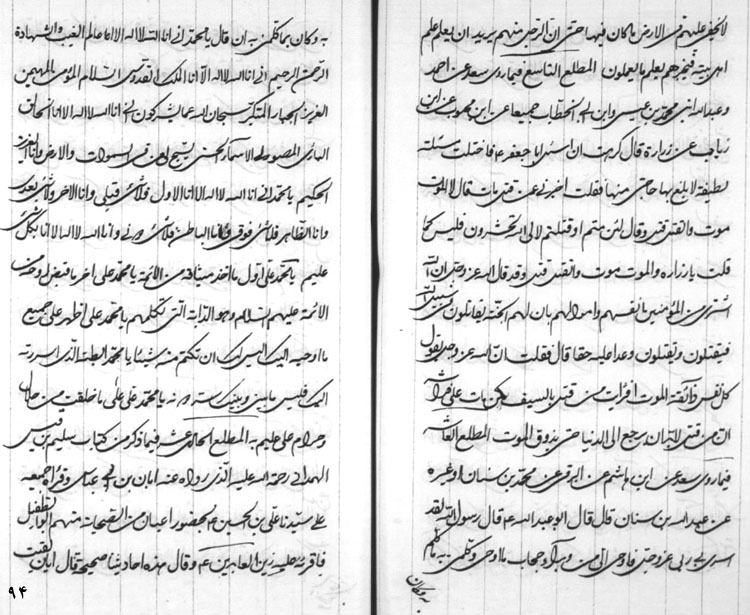 لا يخفى عليهم من الارض ما كان فيها حتى ان الرجل منهم يريد ان يعلم علم
اهل بيته فيخبرهم بعلم ما يعملون المطلع التاسع فيما روى سعد عن احمد
وعبد الله ابنى محمد بن عيسى وابن ابى الخطاب جميعا عن ابن محبوب عن ابن
رياب عن زرارة قال كرهت ان اسئل ابا جعفر ع فاحتلت مسئلة
لطيفة لابلغ بها حاجتى منها فقلت اخبرنى عن قتل مات قال لا الموت
موت والقتل قتل وقال لئن متم او قتلتم لالى الله تحشرون فليس كما
قلت يا زرارة والموت موت والقتل قتل وقد قال الله عز وجل ان الله
اشترى من المؤمنين انفسهم واموالهم بان لهم الجنة يقاتلون فى سبيل الله
فيقتلون ويقتلون وعدا عليه حقا قال فقلت ان الله عز وجل يقول
كل نفس ذائقة الموت افرايت من قتل بالسيف لم مات على فراشه
ان من قتل لا بد ان يرجع الى الدنيا حتى يذوق الموت المطلع العاشر
فيما روى سعد عن ابن هاشم عن البرقى عن محمد بن سنان او غيره
عن عبد الله بن سنان قال قال ابو عبد الله ع قال رسول الله لقد
اسرى بى ربى عز وجل فاوحى الى من وراء حجاب ما اوحى وكلمنى به
به وكان
به وكان بما كلمنى به ان قال يا محمد انى انا الله لا اله الا انا عالم الغيب والشهادة
الرحمن الرحيم انى انا الله لا اله الا انا الملك القدوس السلام المؤمن المهيمن
العزيز الجبار المتكبر سبحان الله عما يشركون انى انا الله لا اله الا انا الخالق
البارئ المصور لى الاسماء الحسنى يسبح لى من فى السموات والارض وانا العزيز
الحكيم يا محمد انى انا الله لا اله الا انا الاول فلا شئ قبلى وانا الاخر فلا شئ بعدى
وانا الظاهر فلا شئ فوقى وانا الباطن فلا شئ دونى وانا الله لا اله الا انا بكل شئ
عليم يا محمد على اول ما اخذ ميثاقه من الائمة يا محمد على اخر ما اقبض روحه من
الائمة عليهم السلام وهو الدابة التى تكلمهم يا محمد على اظهر على جميع
ما اوحيه اليك ليس لك ان تكتم منه شيئا يا محمد ابطنه الذى اسررته
اليك فليس ما بينى وبينك سر دونه يا محمد على على ما خلقت من حلال
وحرام على عليم به المطلع الحادى عشر فيما ذكر من كتاب سليم بن قيس
الهلالى رحمة الله عليه الذى رواه عنه ابان بن ابى عياش وقراه جميعه
على سيدنا على بن الحسين ع بحضور اعيان من الصحابة منهم ابو الطفيل
فاقره عليه زين العابدين ع وقال هذه احاديثنا صحيحة قال ابان لقيت
٩۴